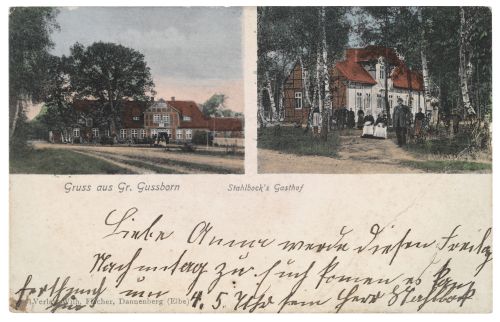 Gruss aus Gr. Gussborn
Stahlbock's Gasthof
Liebe Anna werde diesen Freitag
Nachmitag zu Euch komen es kan
um 4. 5. Uhr sein Herr Stahlbock
Verlag Wilh. Fischer, Dannenberg (Elbe)